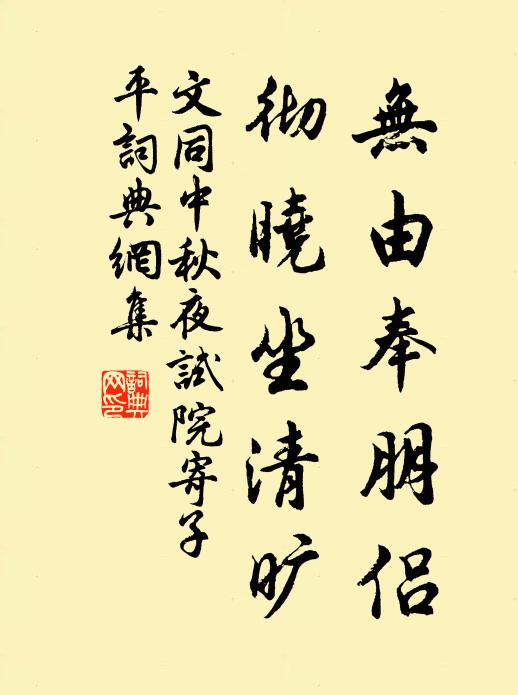 無由奉朋侣
彻曉坐清旷
文同中秋夜試院寄子
平詞典網集
詞典
网印